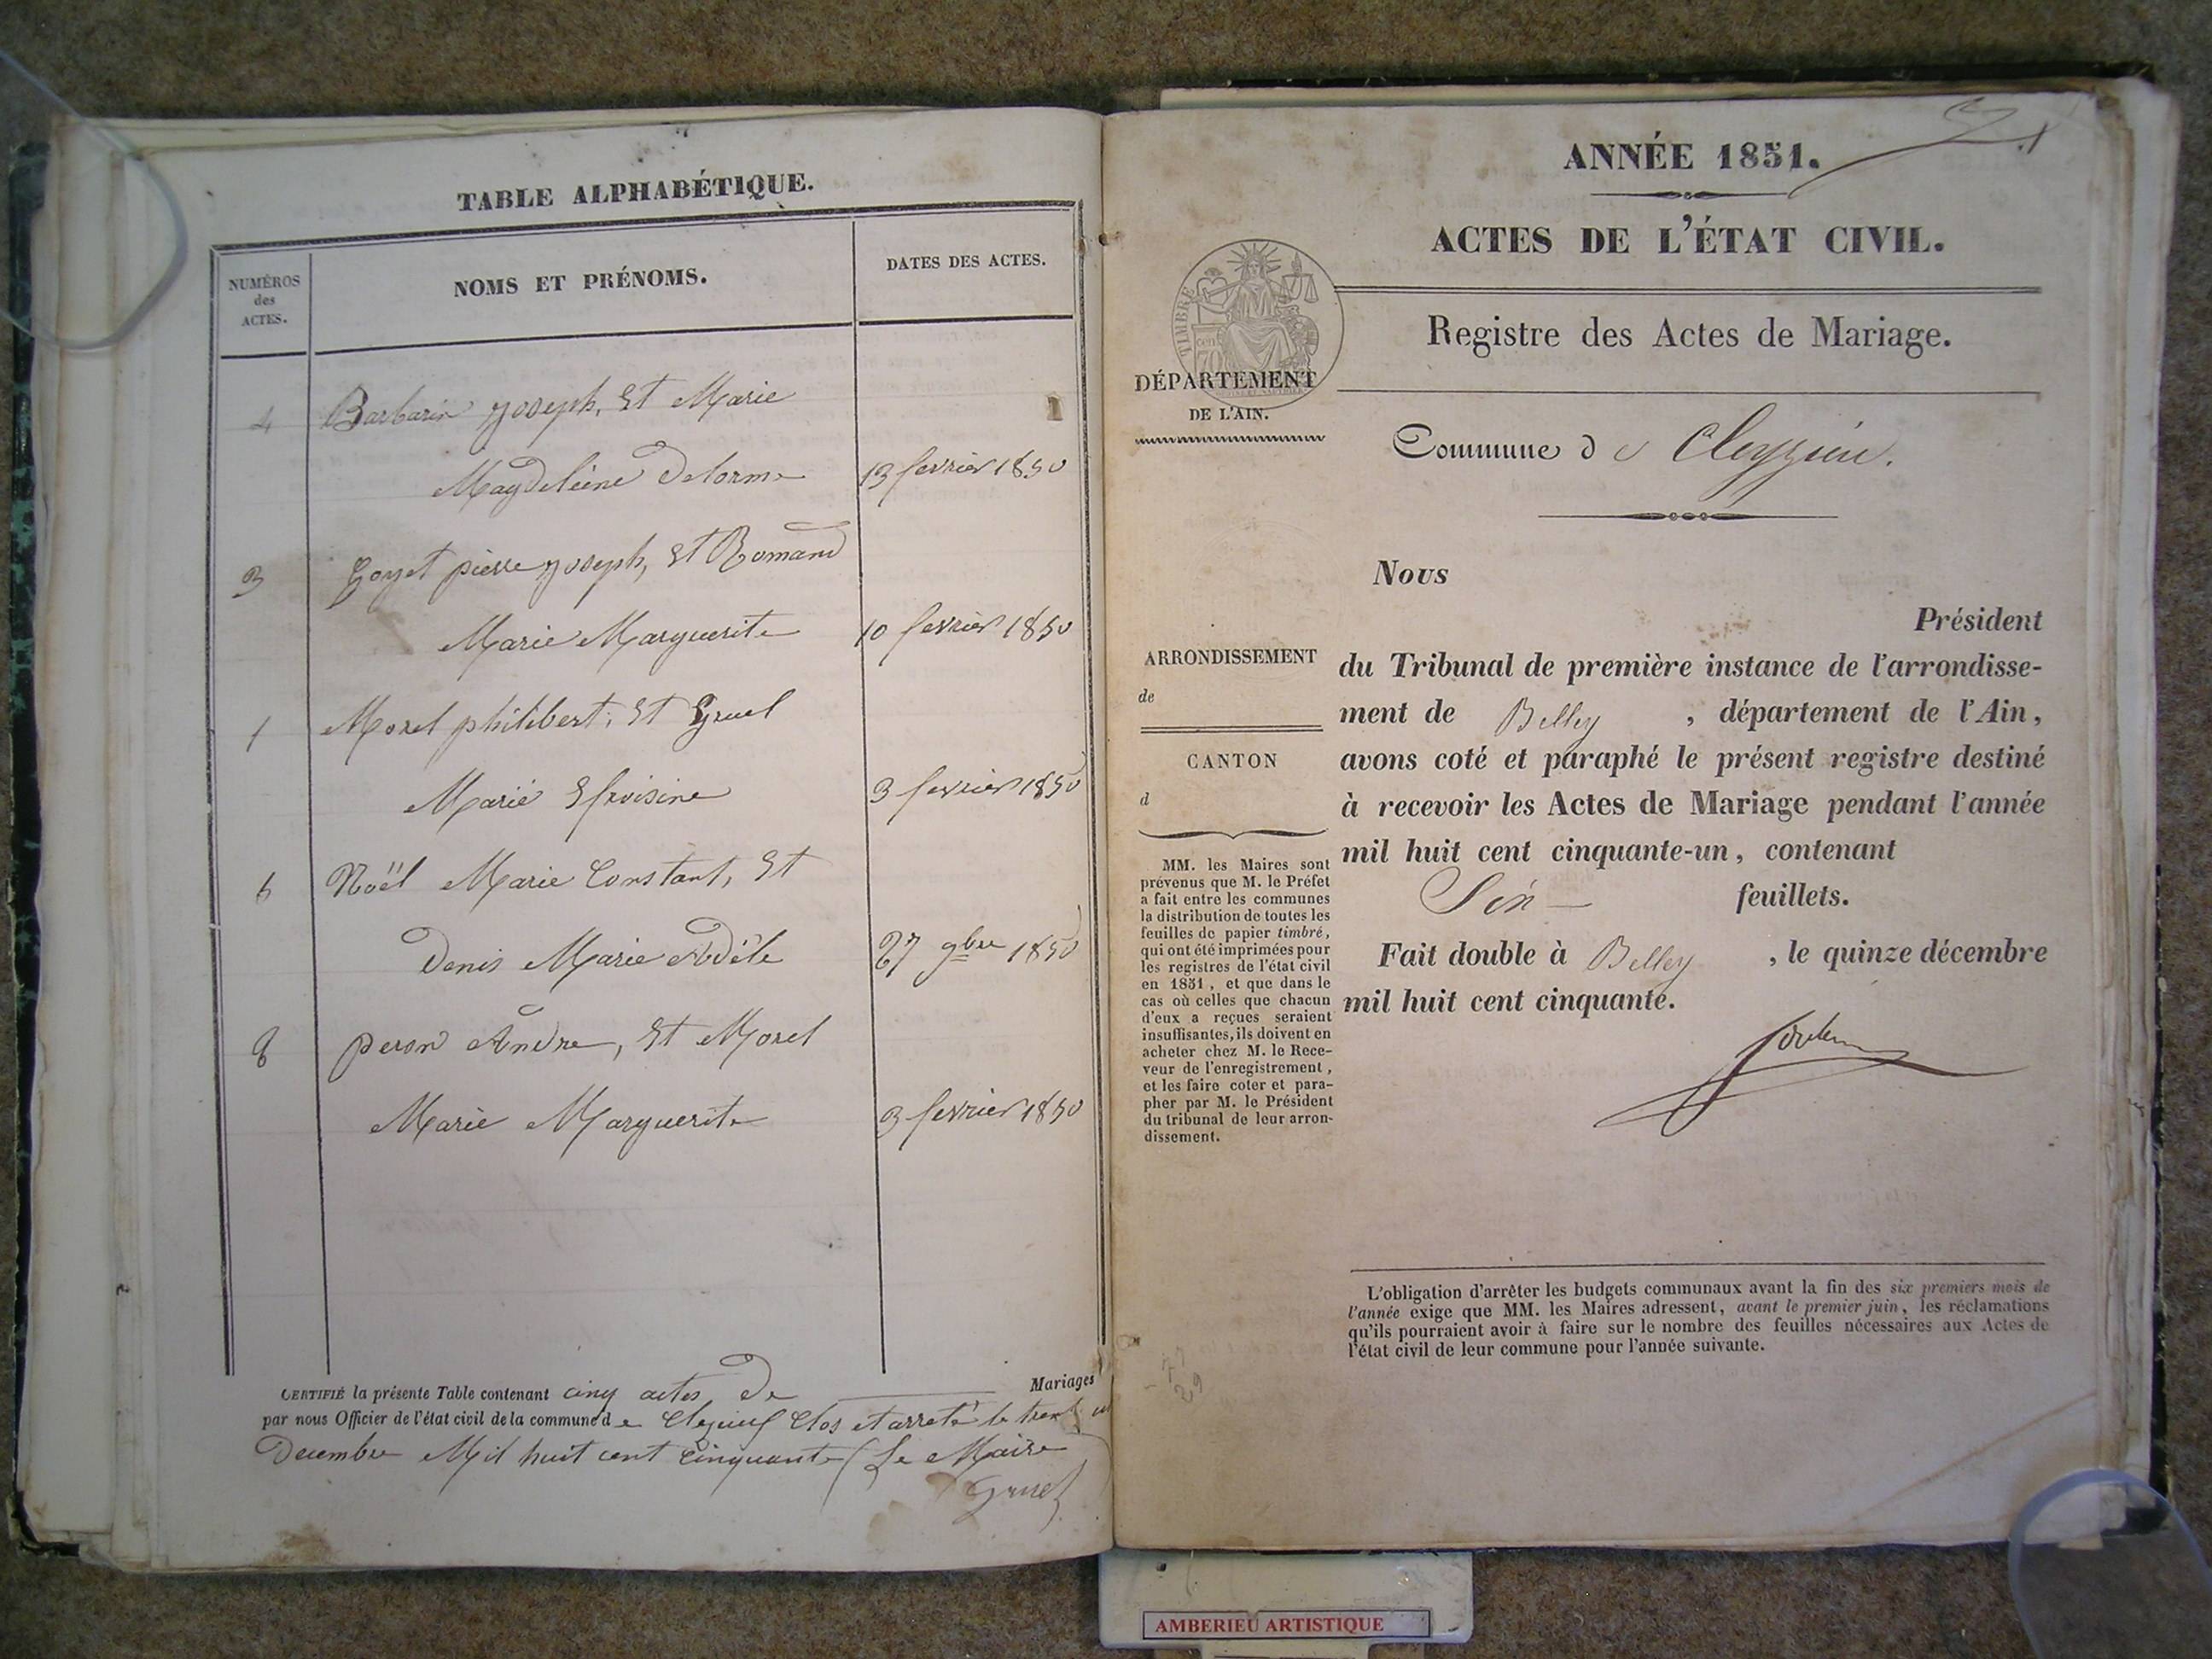 TABLE ALPHABÉTIQUE.
NUMÉROS
des
ACTES.
NOMS ET PRÉNOMS.
DATES DES ACTES.
4 Barbarin joseph, Et Marie
Magdeleine Delorme 13 fevrier 1850
3 Goyet pierre joseph, Et Romand
Marie Marguerite 10 fevrier 1850
1 Morel philibert, Et Gruel
Marie Efroisine 3 fevrier 1850
5 Noël Marie Constant, Et
Denis Marie Adèle 27 9bre 1850
2 peron Andre, Et Morel
Marie Marguerite 3 fevrier 1850
CERTIFIÉ la présente Table contenant cinq actes de Mariages
par nous Officier de l'état civil de la commune de Cleyzieu Clos et arreté le trent un
Decembre Mil huit cent Cinquante Le Maire
Gruel
ANNÉE 1851.
ACTES DE L'ÉTAT CIVIL.
Registre des Actes de Mariage.
TIMBRE
70
DÉPARTEMENT
DE L'AIN.
Commune de Cleyzieu.
Nous
Président
ARRONDISSEMENT
de
CANTON
d
du Tribunal de première instance de l'arrondisse-
ment de Belley, département de l'Ain,
avons coté et paraphé le présent registre destiné
à recevoir les Actes de Mariage pendant l'année
mil huit cent cinquante-un, contenant
Six feuillets.
Fait double à Belley, le quinze décembre
mil huit cent cinquante.
MM. les Maires sont
prévenus que M. le Préfet
a fait entre les communes
la distribution de toutes les
feuilles de papier timbré,
qui ont été imprimées pour
les registres de l'état civil
en 1851, et que dans le
cas où celles que chacun
d'eux a reçues seraient
insuffisantes, ils doivent en
acheter chez M. le Rece-
veur de l'enregistrement,
et les faire coter et para-
pher par M. le Président
du tribunal de leur arron-
dissement.
L'obligation d'arrêter les budgets communaux avant la fin des six premiers mois de
l'année exige que MM. les Maires adressent, avant le premier juin, les réclamations
qu'ils pourraient avoir à faire sur le nombre des feuilles nécessaires aux Actes de
l'état civil de leur commune pour l'année suivante.
AMBERIEU ARTISTIQUE